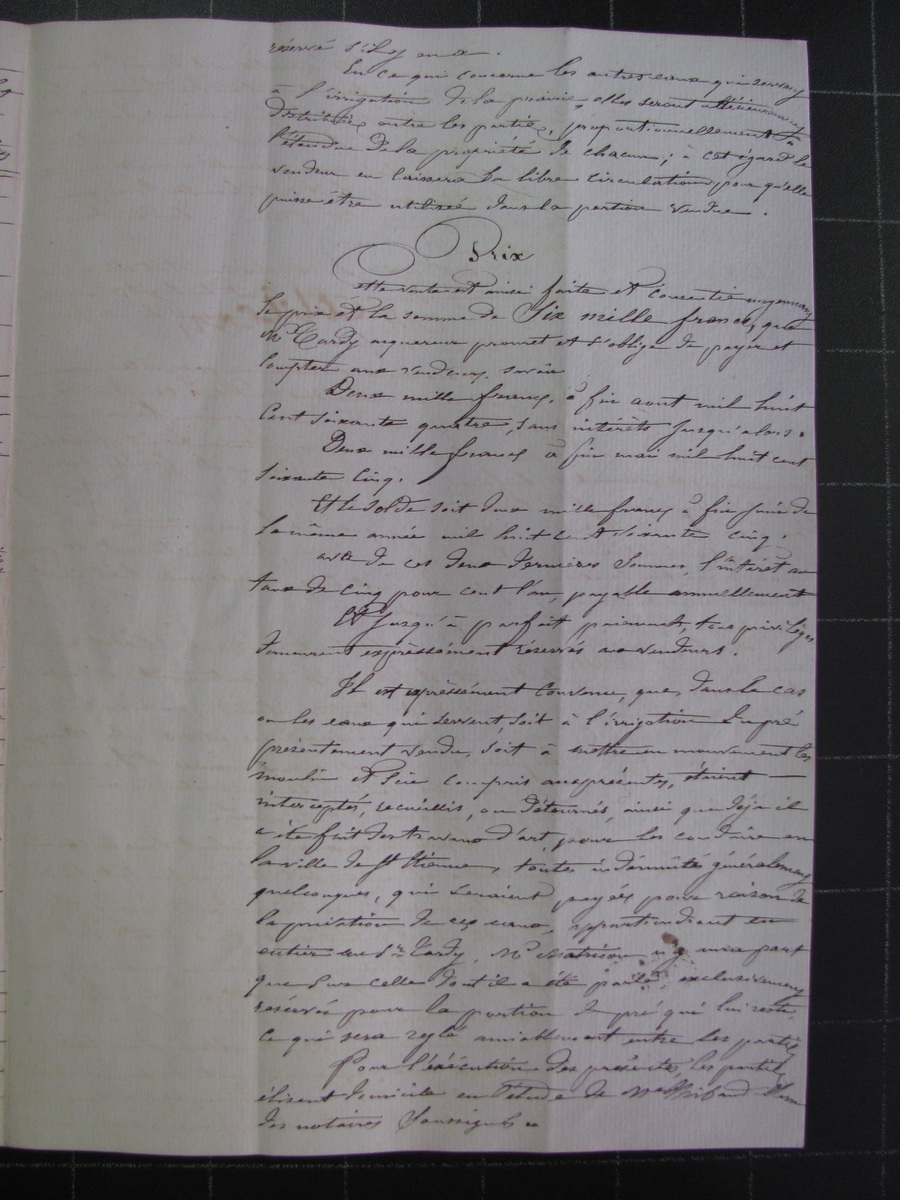 réservé s'il y en a.
En ce qui concerne les autres eaux qui servent
à l'irrigation de la prairie, elles seront ultérieurement
distribuées entre les parties, proportionnellement à
l'étendue de la propriété de chacun; à cet égard le
vendeur en laissera la libre circulation pour qu'elle
puisse être utilisée dans la portion vendue.
Prix
Cette vente est ainsi faite et consentie moyennant
le prix et la somme de Six mille francs, que
Mr Tardy acquéreur promet et s'oblige de payer et
compter aux vendeurs, savoir
Deux mille francs, à fin août mil huit
cent soixante quatre, sans intérêts jusqu'alors.
Deux mille francs à fin mai mil huit cent
soixante cinq.
Et le solde soit deux mille francs à fin juin de
la même année mil huit cent soixante cinq.
avec de ces deux dernières sommes, l'intérêt au
taux de cinq pour cent l'an, payable annuellement
Et jusqu'à parfait paiement, tous privilèges
demeurent expressément réservés aux vendeurs.
Il est expressément convenu, que, dans le cas
ou les eaux qui servent, soit à l'irrigation du pré
présentement vendu, soit à mettre en mouvement les
moulin et scie compris aux présentes, étaient
interceptés, recueillis, ou détournés, ainsi que déjà il
a été fait des travaux d'art, pour les conduire en
la ville de St Etienne, toutes indemnités généralement
quelconques, qui seraient payés pour raison de
la privation de ces eaux, appartiendront en
entier au Sr Tardy, Mr n'y aura part
que sur celle dont il a été parlé, exclusivement
réservée pour la portion de pré qui lui reste,
ce qui sera réglé amiablement entre les parties
Pour l'exécution des présentes, les parties
élisent domicile en l'étude de Me l'un
des notaires soussignés